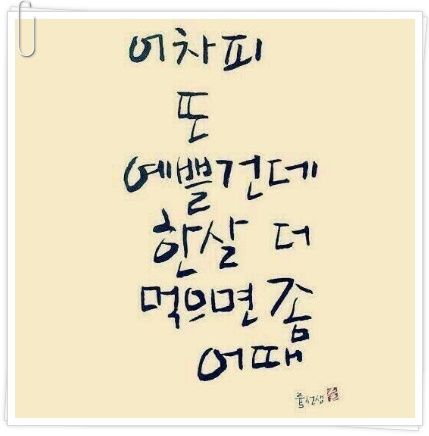 어차피
또
예쁠건데
한살 더
먹으면 좀
어때